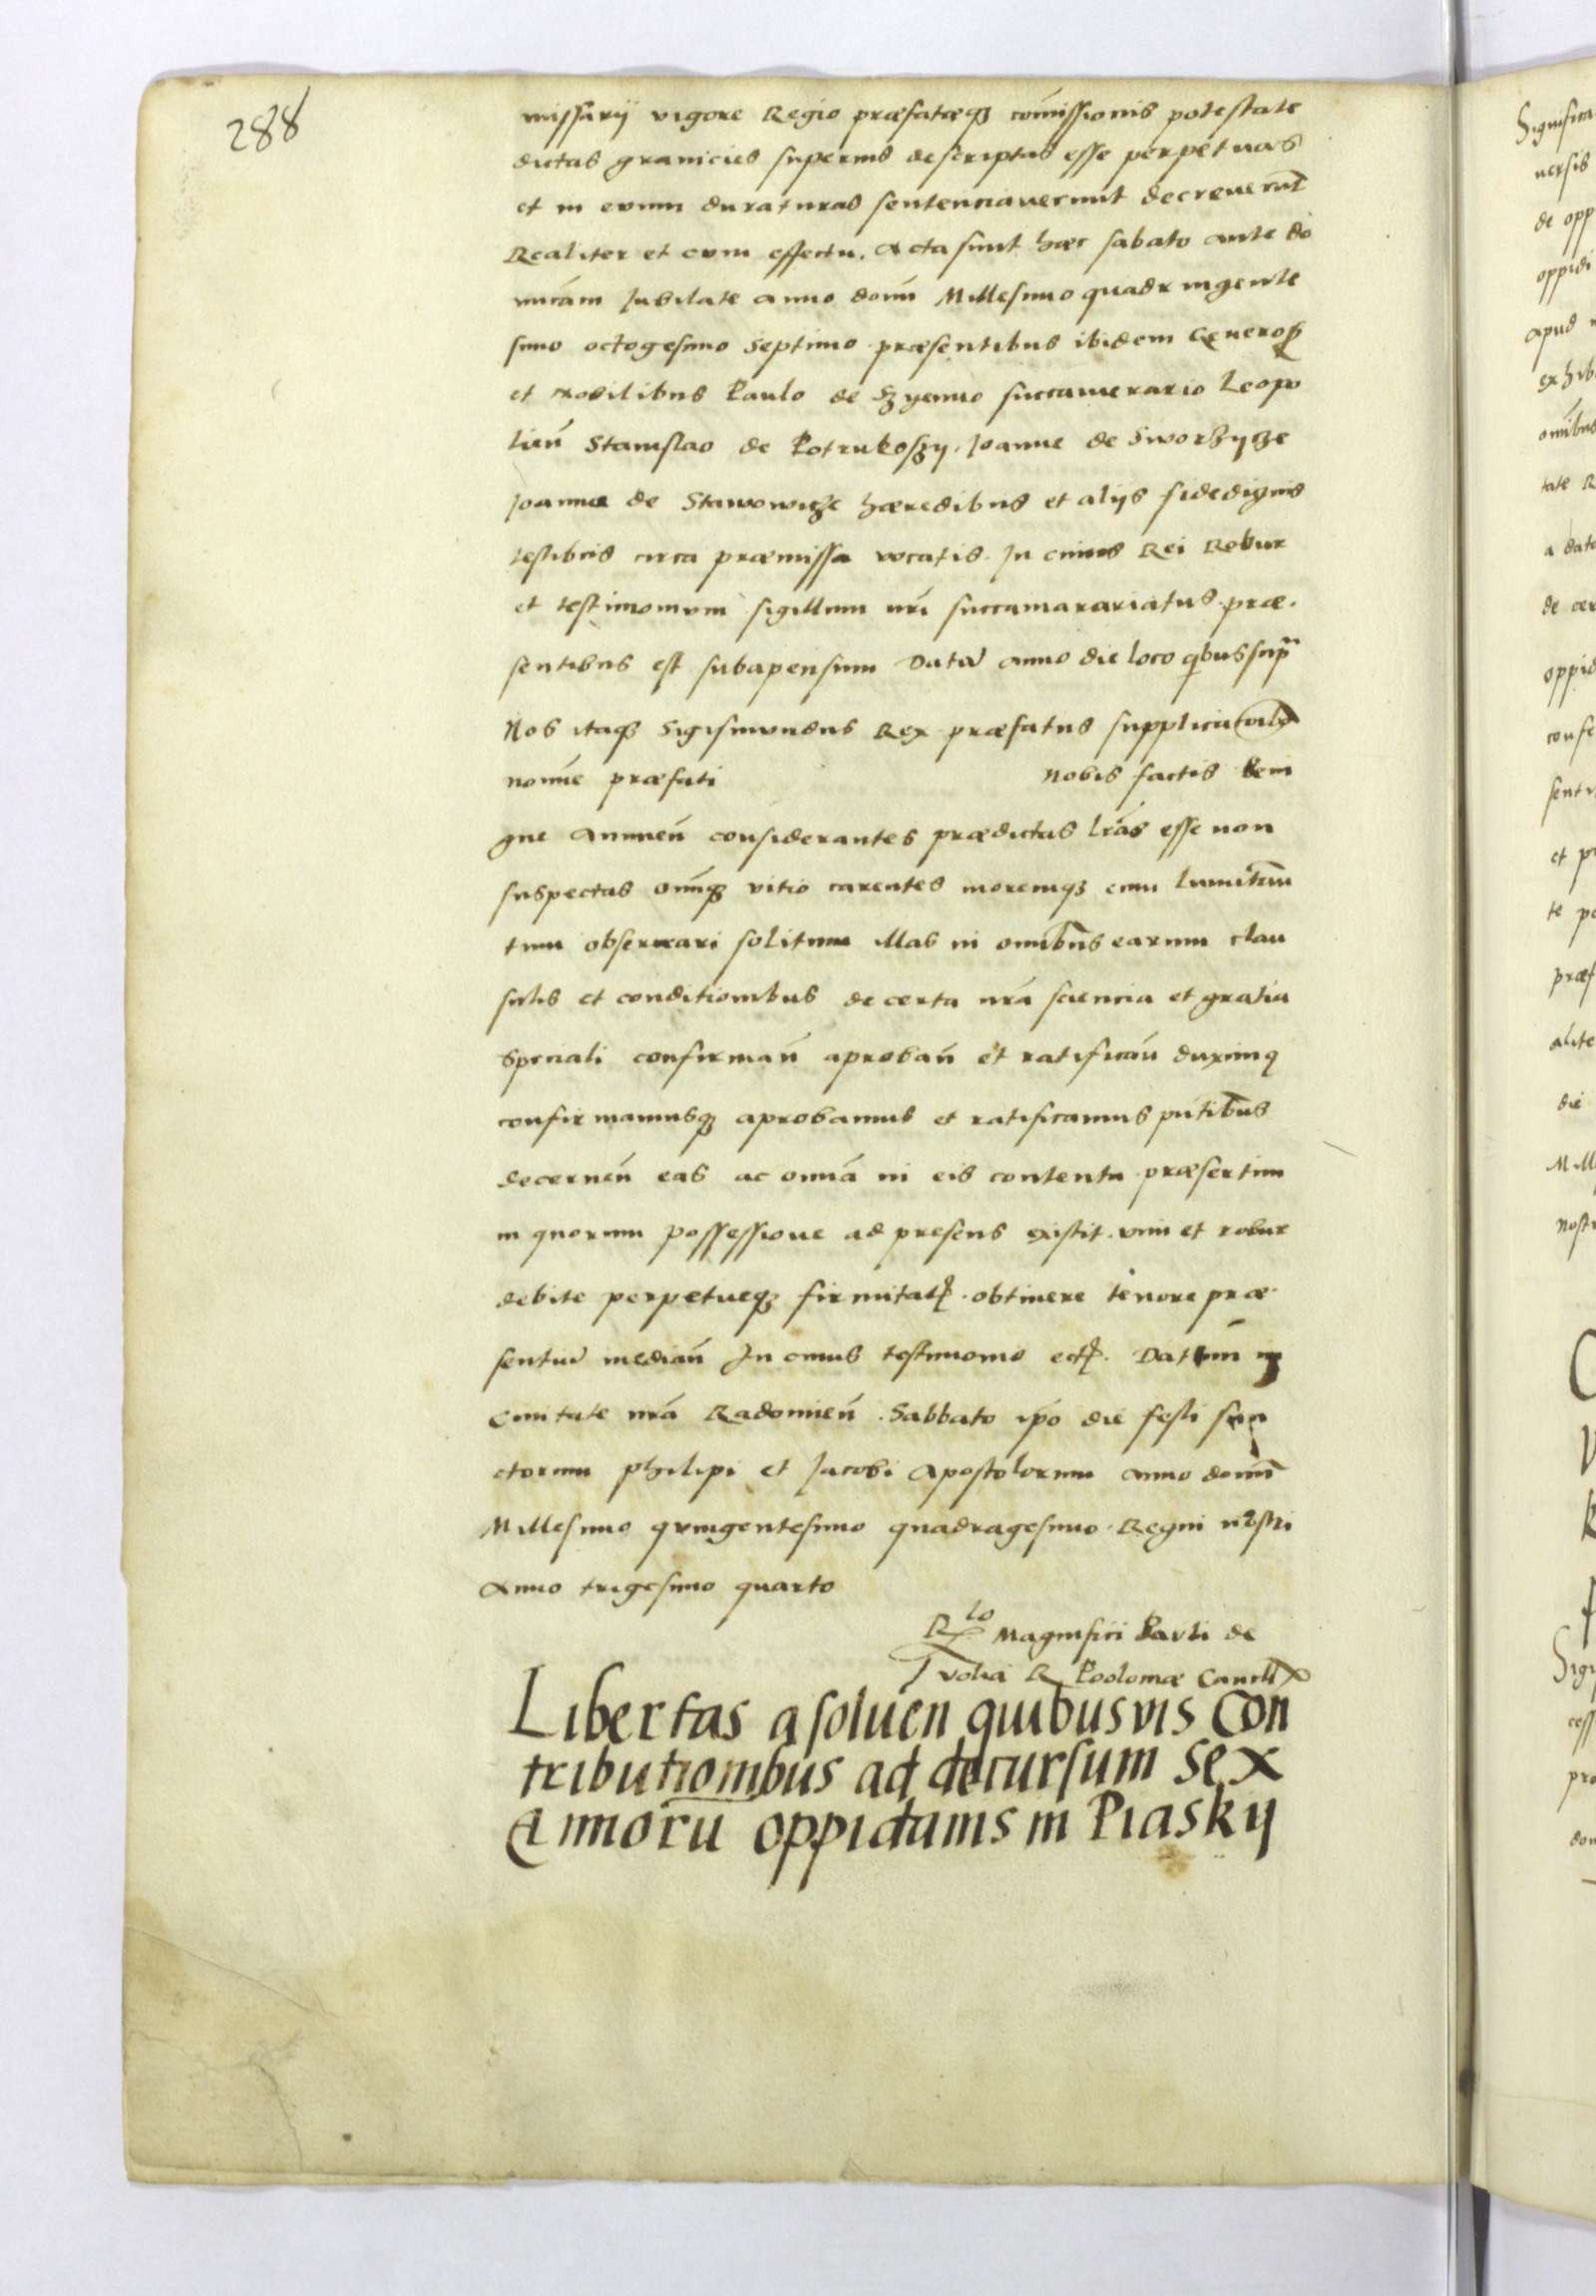 288
missarij vigore Regio præfatæq₃ com̄issionis potestate
dictas granicies superius descriptas esse perpetuas
et in evum duraturas sentenciaverunt decreverūt
Realiter et cum effectu. Acta sunt hæc sabato ante do
minicam Jubilate anno domī Millesimo quadringente
simo octogesimo septimo præsentibus ibidem Generosis
et Nobilibus Paulo de succamerario Leopo
lień Stanislao de Joanne de
Joanne de hæredibus et alijs fidedignis
testibus circa præmissa vocatis. In cuius Rei Robur
et testimonium sigillum nr̄i succamarariatus præ-
sentibus est subapensum Datū anno die loco qbus supra
Nos itaq₃ Sigismundus Rex præfatus supplica
nomīe præfati nobis factis beni
gne annueń considerantes prædictas lr̄as esse non
suspectas omīq₃ vitio carentes moremq₃ eum
tum observari solitum illas in omībus earum clau
sulis et conditionibus de certa nr̄a sciencia et gratia
speciali confirmań aprobań et ratificań duximus
confirmamusq₃ aprobamus et ratificamus pn̄tibus
decerneń eas ac omīa in eis contenta præsertim
in quorum possessione ad presens existit. vim et robur
debite perpetueq₃ firmitatis obtinere tenore præ
sentiū mediań In cuius testimonio ect. Dattum in
Civitate nr̄a Radomień. Sabbato ip̄o die festi san
ctorum philipi et Jacobi Apostolorum anno domī
Millesimo quingentesimo quadragesimo. Regni nostri
Anno trigesimo quarto
Rlo Magnifici Pauli de
volia R Poloniæ Cancell
Libertas a soluen quibusvis Con
tributionibus ad decursum sex
Annorū oppidanis in Piaskij